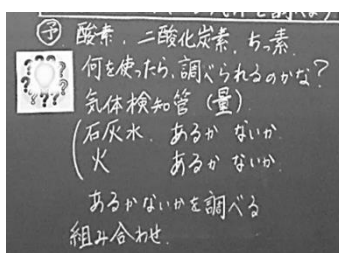 予 酸素、二酸化炭素、ちっ素
何を使ったら、調べられるのかな?
気体検知管（量）
石灰水 あるか ないか
火 あるか ないか
あるかないかを調べる
組み合わせ